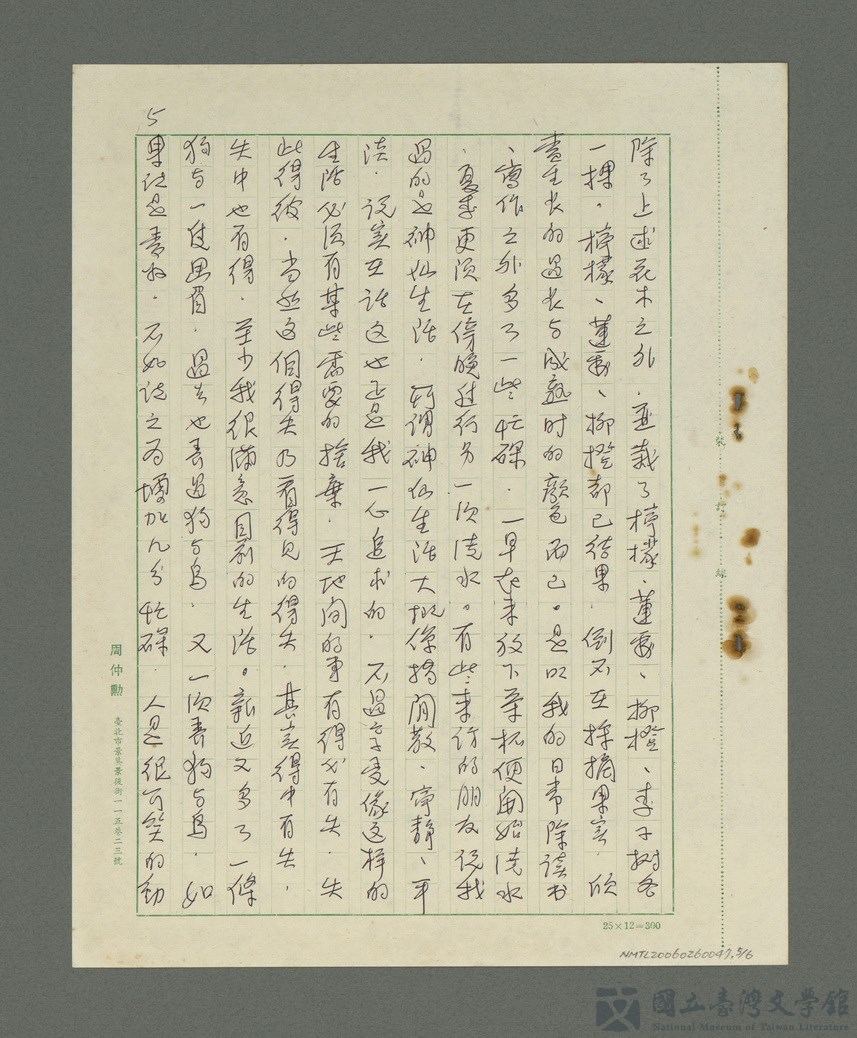 5
除了上述花木之外，並栽了檸檬、蓮霧、柳橙、李子樹各
一棵。檸檬、蓮霧、柳橙都已結果，倒不在採摘果實，欣
賞生长的過长与成熟时的顏色而已。是以我的日常除读书
、寫作之外多了一些忙碌，一早起来放下茶杯便開始澆水
，夏季更须在傍晚進行另一次澆水。有些来访的朋友说我
過的是神仙生活，所谓神仙生活大概像指閒散、寧靜、平
淡，说实在话这也正是我一心追求的，不過享受像这样的
生活必须有某些需要的捨棄，天地间的事有得必有失，失
此得彼，当然这個得失乃看得見的得失，其实得中有失，
失中也有得，至少我很滿意目前的生活。新近又多了一條
狗与一隻畫眉，過去也養過狗与鳥，又一次養狗与鳥，如
果说是責任，不如说之为增加几分忙碌，人是很可笑的動
周仲勳
臺北市景美景後街一一五巷二三號
裝 訂 線
25×12=300
NMTL20060260047.5/6
國立臺灣文學館
National Museum of Taiwan Literature